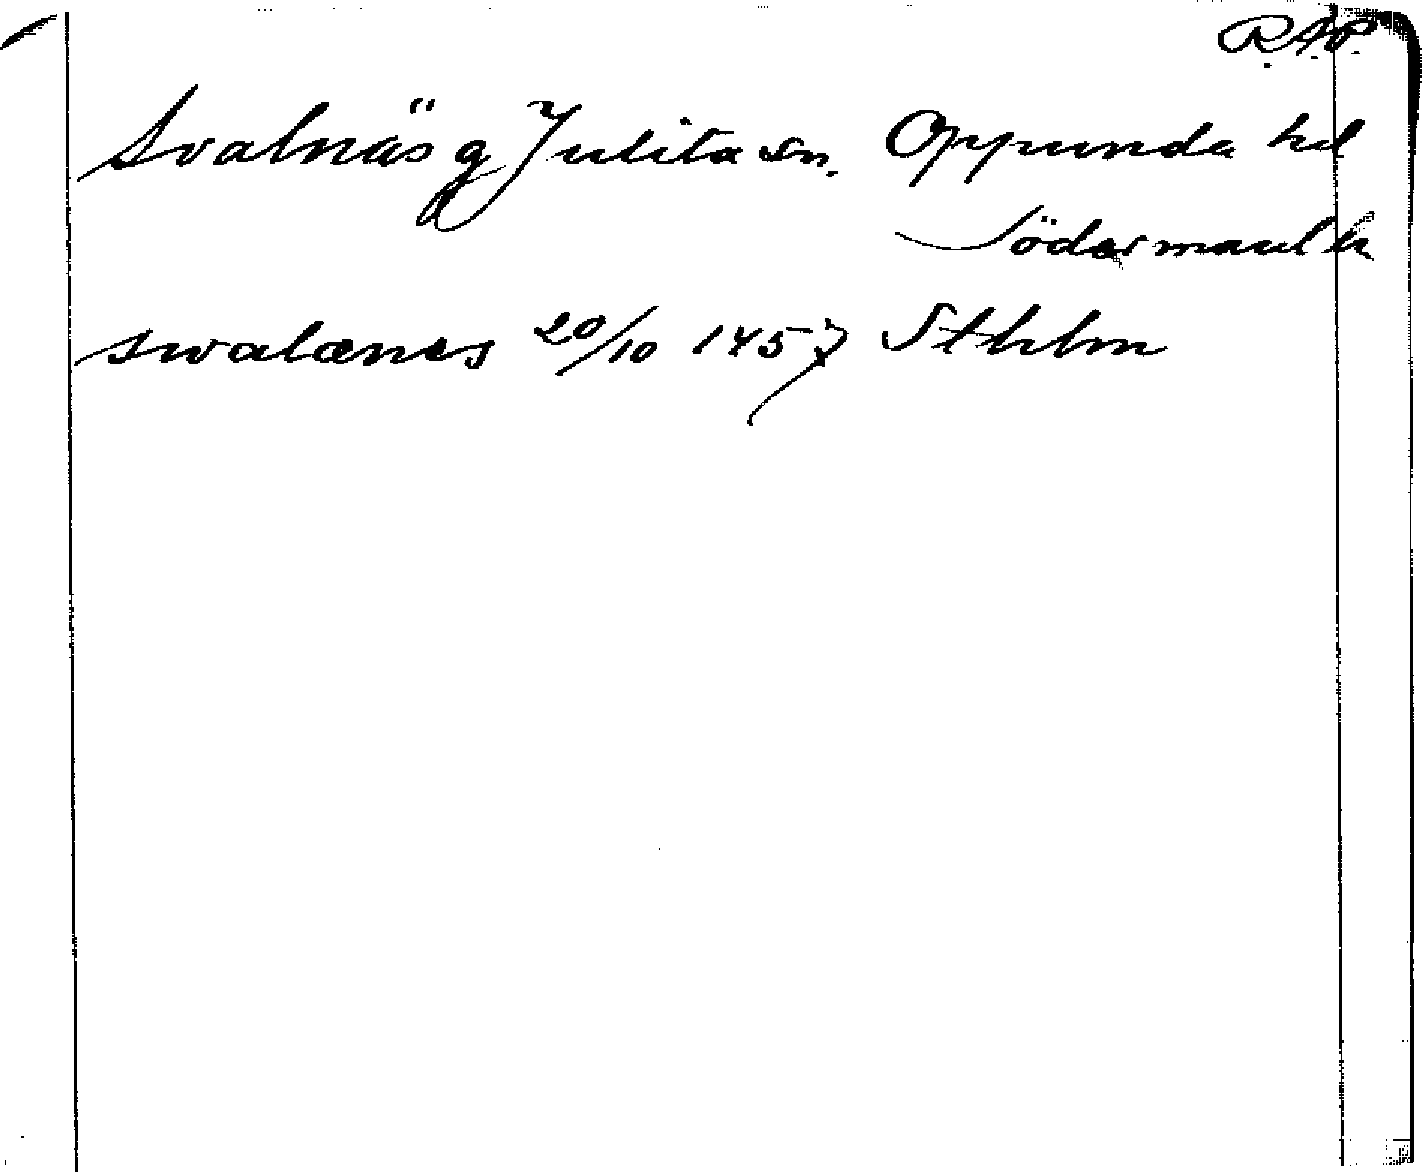 R.A.P.
Svalnäs g Julita sn. Oppunda hd
Södermanl
swalænes 20/10 1457 Sthlm